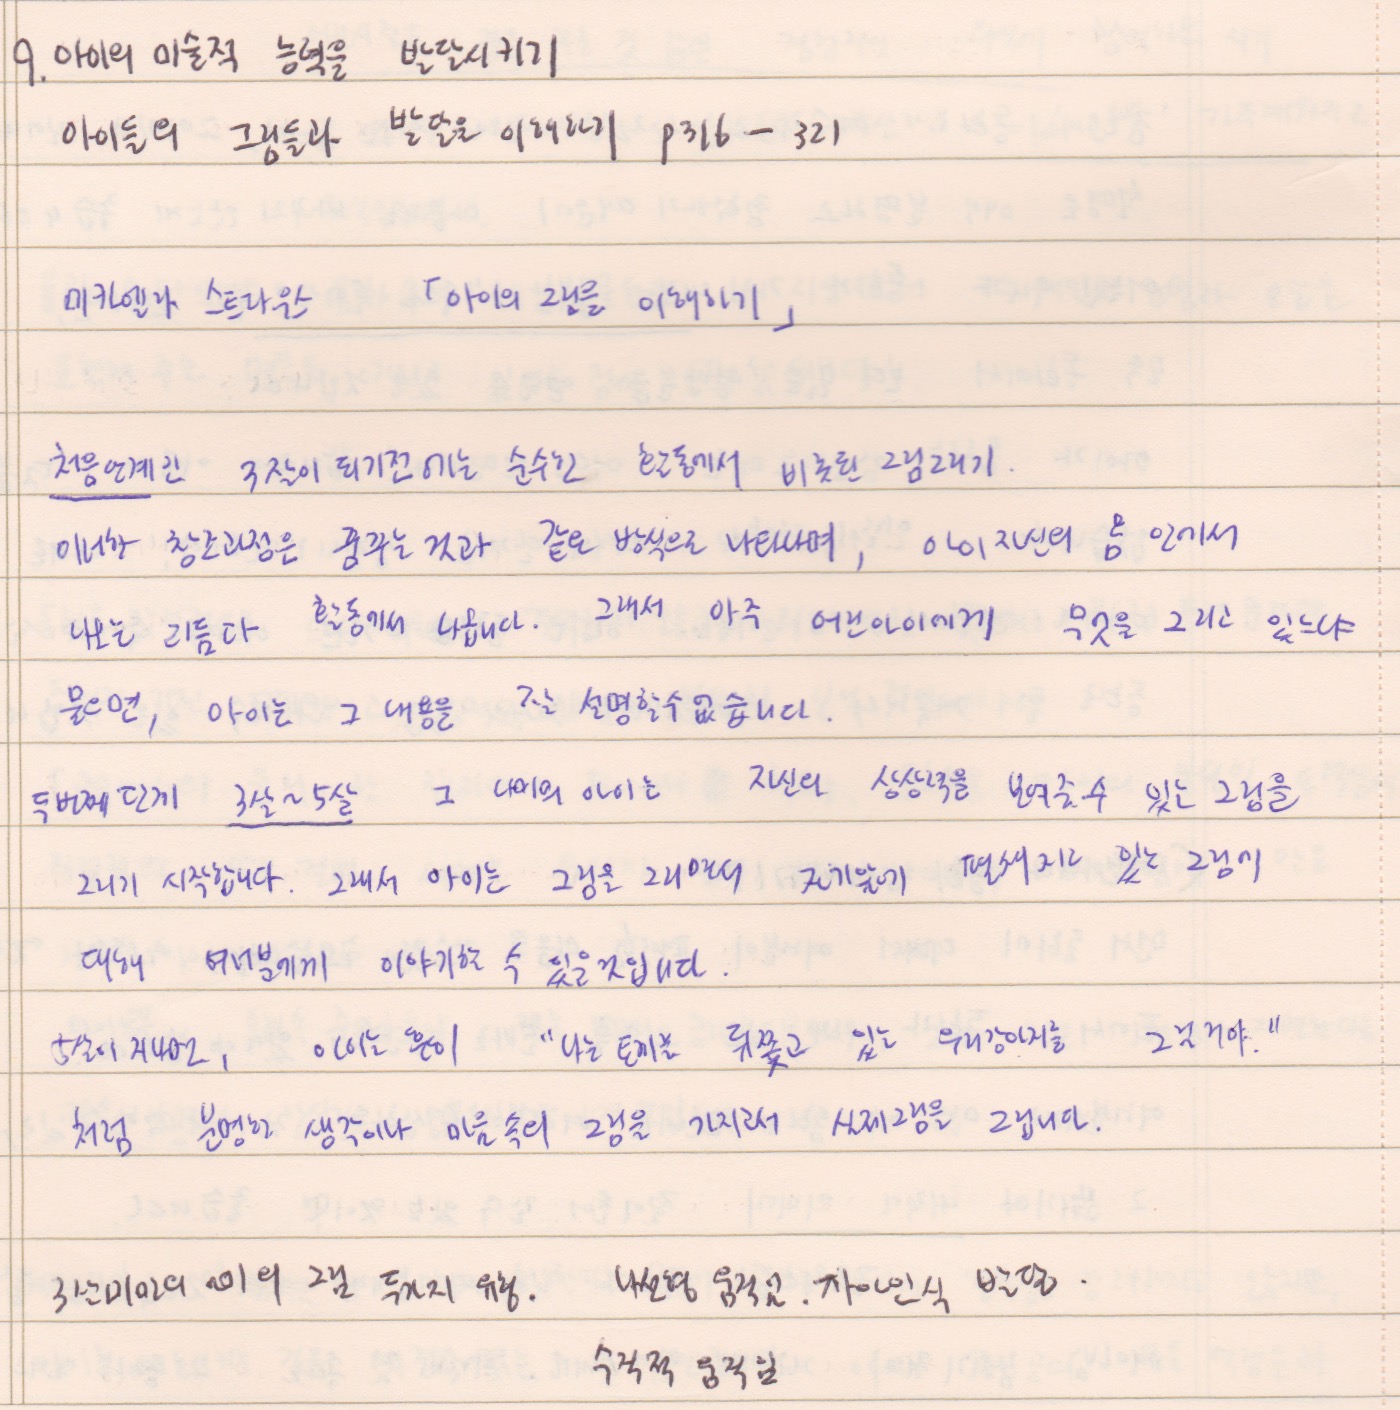 9. 아이의 미술적 능력을 발달시키기
아이들의 그림들과 발달을 이해하기 p316 - 321
미카엘라 스트라우스 「아이의 그림을 이해하기」
처음단계인 3살이 되기전에는 순수한 활동에서 비롯된 그림그리기.
이러한 창조과정은 꿈꾸는 것과 같은 방식으로 나타나며, 아이 자신의 몸 안에서
나오는 리듬과 활동에서 나옵니다. 그래서 아주 어린아이에게 무엇을 그리고 있느냐
물으면, 아이는 그 내용을 잘 설명할수 없습니다.
두번째 단계 3살~5살 그 나이의 아이는 자신의 상상력을 보여줄 수 있는 그림을
그리기 시작합니다. 그래서 아이는 그림을 그리면서 펼쳐지고 있는 그림에
대해 여러분에게 이야기할 수 있을것입니다.
5살이 지나면, 아이는 흔히 "나는 토끼를 뒤쫓고 있는 우리강아지를 그릴거야."
처럼 분명한 생각이나 마음속의 그림을 가지고서 실제그림을 그립니다.
3살미만의 아이의 그림 두가지 유형. 나선형 움직임. 자아인식 발달.
수직적 움직임